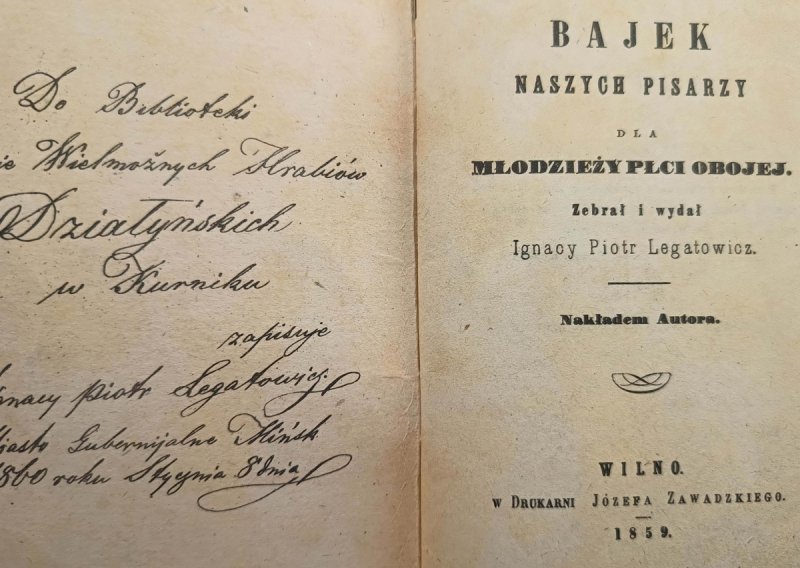 Do Biblioteki
ie Wielmożnych Hrabiów
Działyńskich
w Kurniku
zapisuje
gnacy Piotr Legatowicz.
iasto Gubernijalne Mińsk
860 roku Stycznia 8 dnia
BAJEK
NASZYCH PISARZY
DLA
MŁODZIEŻY PŁCI OBOJEJ.
Zebrał i wydał
Ignacy Piotr Legatowicz.
Nakładem Autora.
WILNO.
W DRUKARNI JÓZEFA ZAWADZKIEGO.
1859.